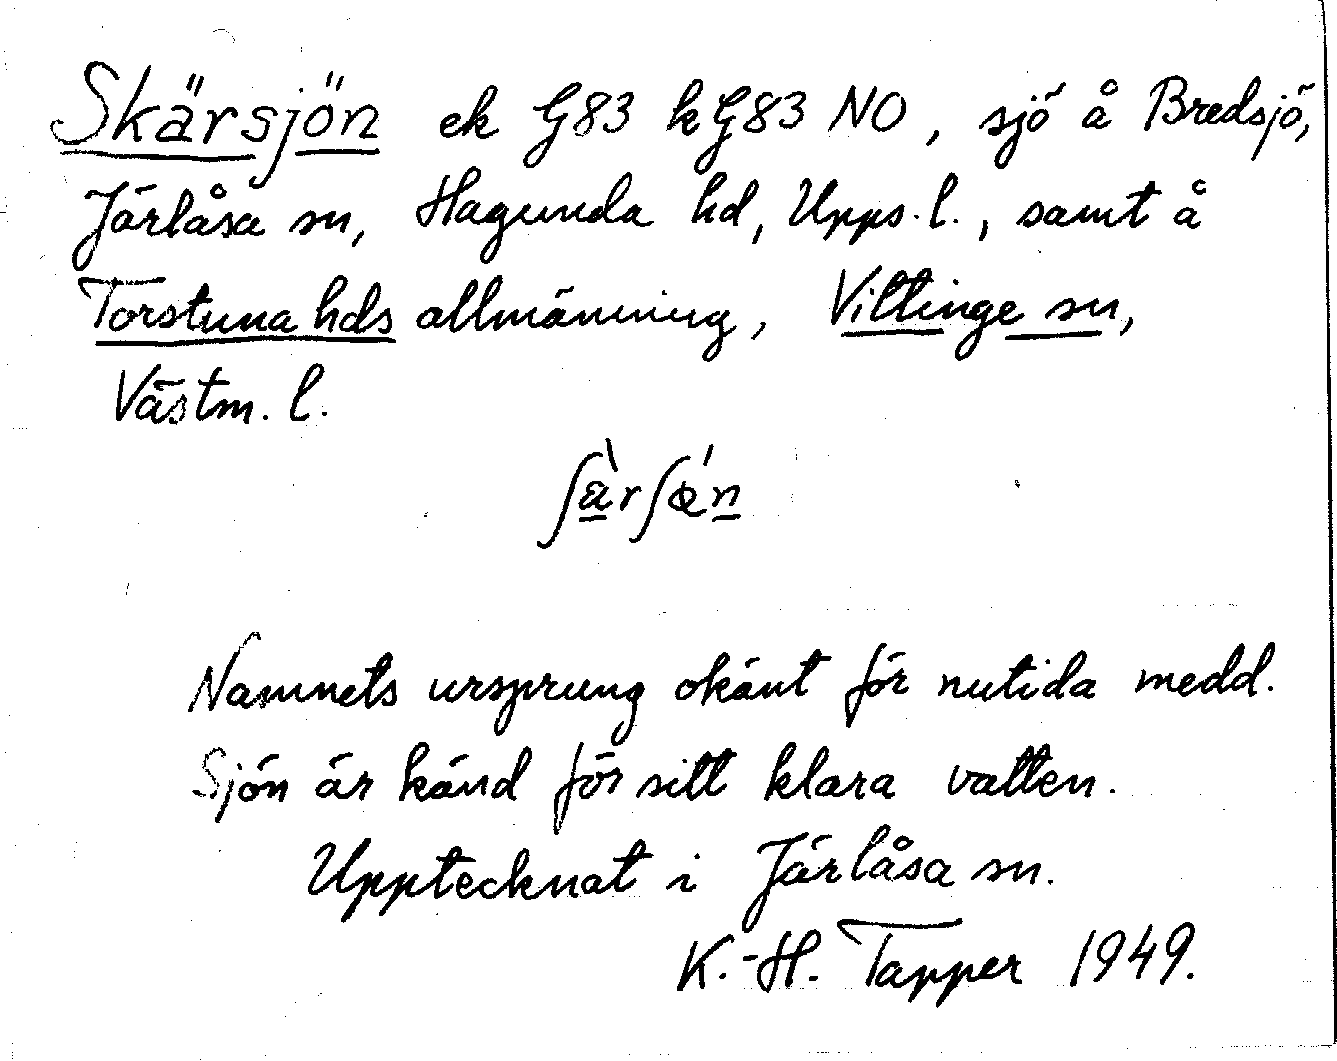 Skärsjön ek G83 kG83 NO, sjö å Bredsjö,
Järlåsa sn, Hagunda hd, Upps.l., samt å
Torstuna hds allmänning, Vittinge sn,
Västm. l.
ʃæ̀rʃǿn
Namnets ursprung okänt för nutida medd.
Sjön är känd för sitt klara vatten.
Upptecknat i Järlåsa sn.
K.-H. Tapper 1949.